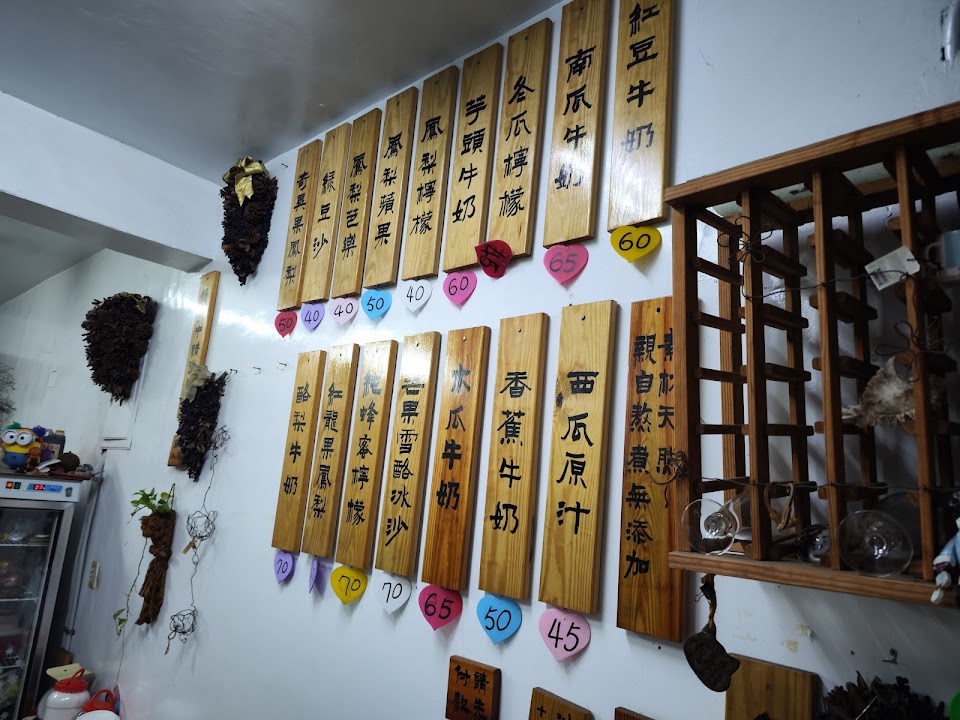 奇異果鳳梨
50
綠豆沙
40
鳳梨芭樂
40
鳳梨蘋果
50
鳳梨檸檬
40
芋頭牛奶
60
冬瓜檸檬
45
南瓜牛奶
65
紅豆牛奶
60
酪梨牛奶
70
紅龍果鳳梨
蜂蜜檸檬
70
芒果雪酪冰沙
70
木瓜牛奶
65
香蕉牛奶
50
西瓜原汁
45
天
親自熬煮無添加
請先
付款